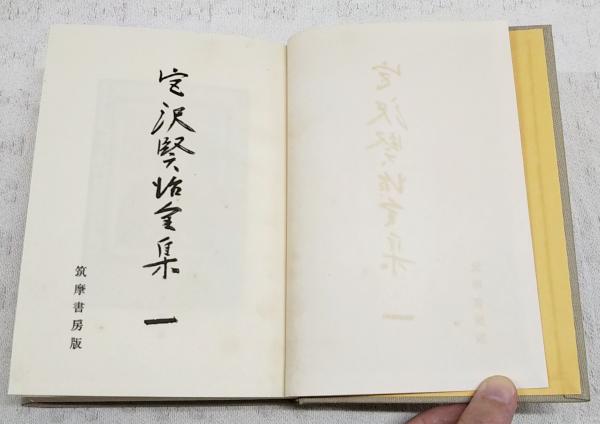 宮沢賢治全集 一
筑摩書房版